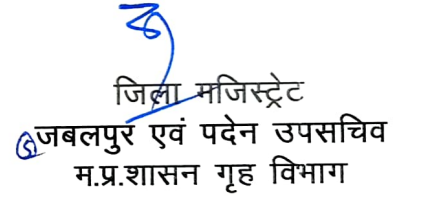 जिला मजिस्ट्रेट
जबलपुर एवं पदेन उपसचिव
म.प्र.शासन गृह विभाग